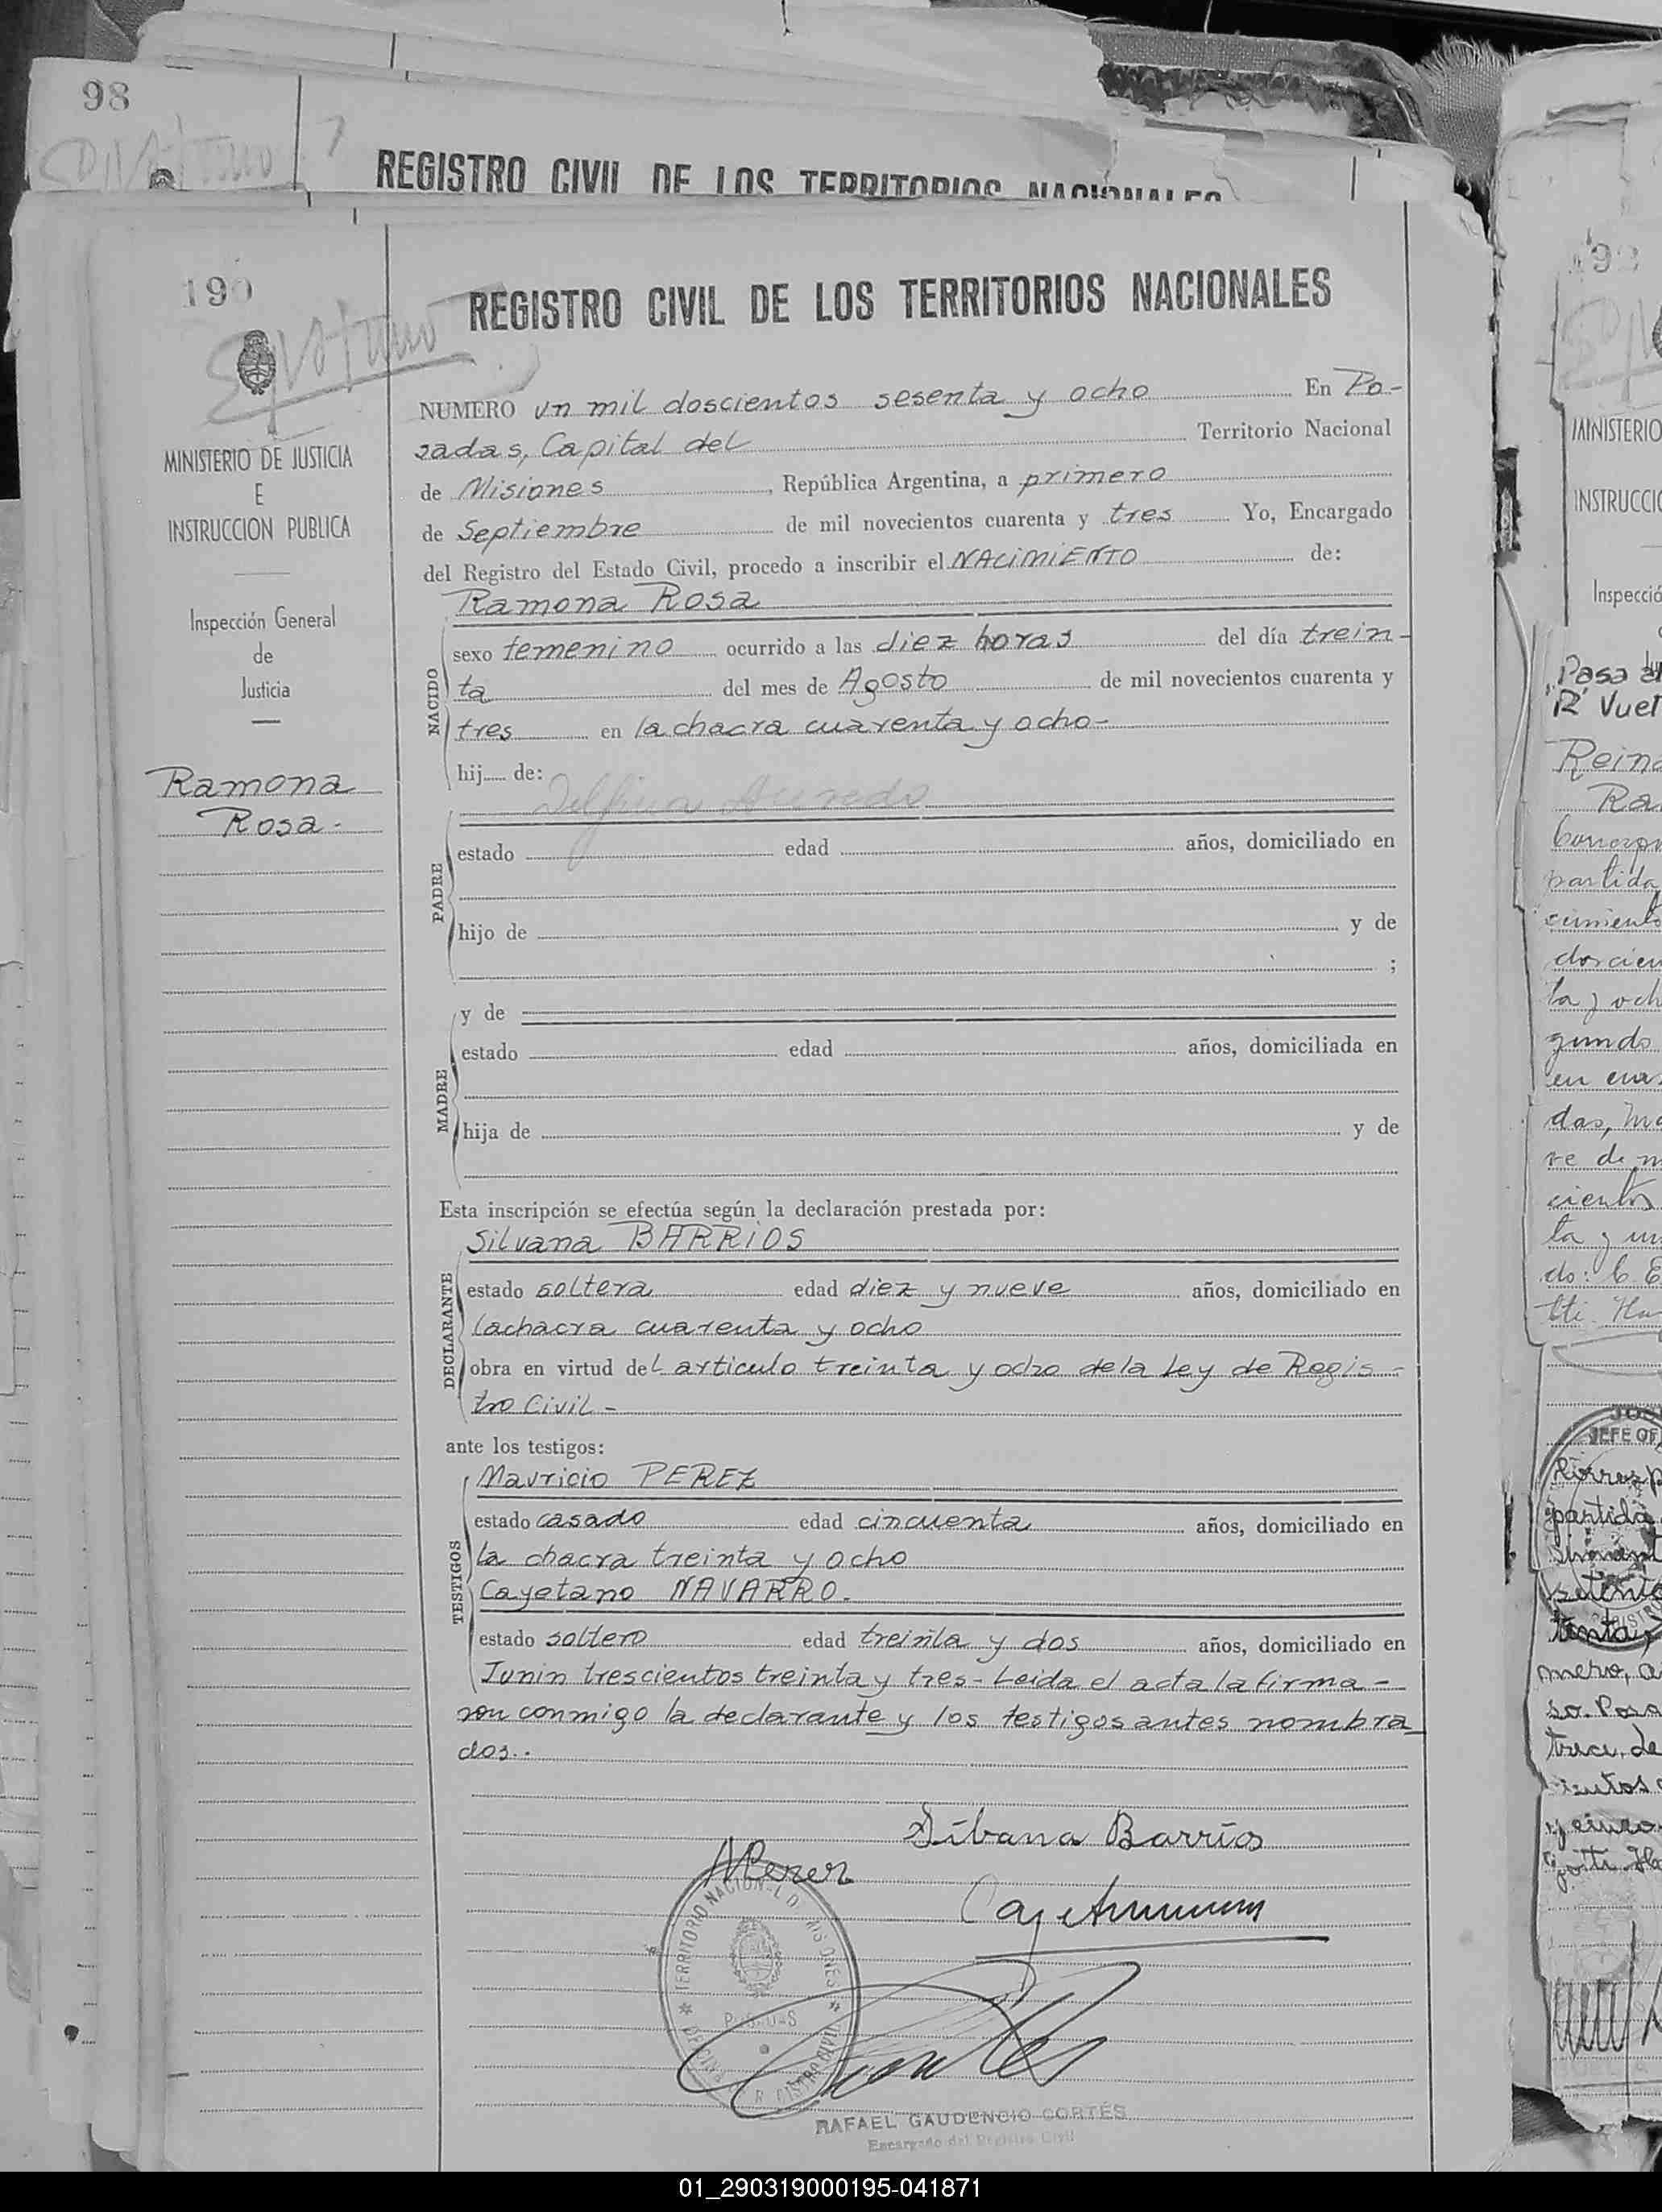 98
REGISTRO CIVIL DE LOS TERRITORIOS NACIONALES
190
REGISTRO CIVIL DE LOS TERRITORIOS NACIONALES
MINISTERIO DE JUSTICIA
E
INSTRUCCION PUBLICA
Inspección General
de
Justicia
Ramona
Rosa.
NUMERO un mil doscientos sesenta y ocho En Po-
sadas, Capital del Territorio Nacional
de Misiones, República Argentina, a primero
de Septiembre de mil novecientos cuarenta y tres Yo, Encargado
del Registro del Estado Civil, procedo a inscribir el NACIMIENTO de:
Ramona Rosa
NACIDO
sexo femenino ocurrido a las diez horas del día trein-
ta del mes de Agosto de mil novecientos cuarenta y
tres en la chacra cuarenta y ocho-
hij de:
PADRE
estado edad años, domiciliado en
hijo de y de
;
y de
MADRE
estado edad años, domiciliada en
hija de y de
Esta inscripción se efectúa según la declaración prestada por:
Silvana BARRIOS
DECLARANTE
estado soltera edad diez y nueve años, domiciliado en
la chacra cuarenta y ocho
obra en virtud del articulo treinta y ocho de la Ley de Regis-
tro Civil-
ante los testigos:
Mauricio PEREZ
TESTIGOS
estado casado edad cincuenta años, domiciliado en
la chacra treinta y ocho
Cayetano NAVARRO.
estado soltero edad treinta y dos años, domiciliado en
Junin trescientos treinta y tres- Leida el acta la firma-
ron conmigo la declarante y los testigos antes nombra
dos..
Sibana Barrios
MPerez
TERRITORIO NACIONAL DE MISIONES
POSADAS
RAFAEL GAUDENCIO CORTÉS
Encargado del Registro Civil
MINISTERIO
INSTRUCCIO
Inspecció
Pasa al
"R" Vuel
Reina
Ra
partida
cimiento
doscien
ta y och
gundo
das, Ma
ve de m
cientos
ta y un
JEFE OF
partida
01_290319000195-041871